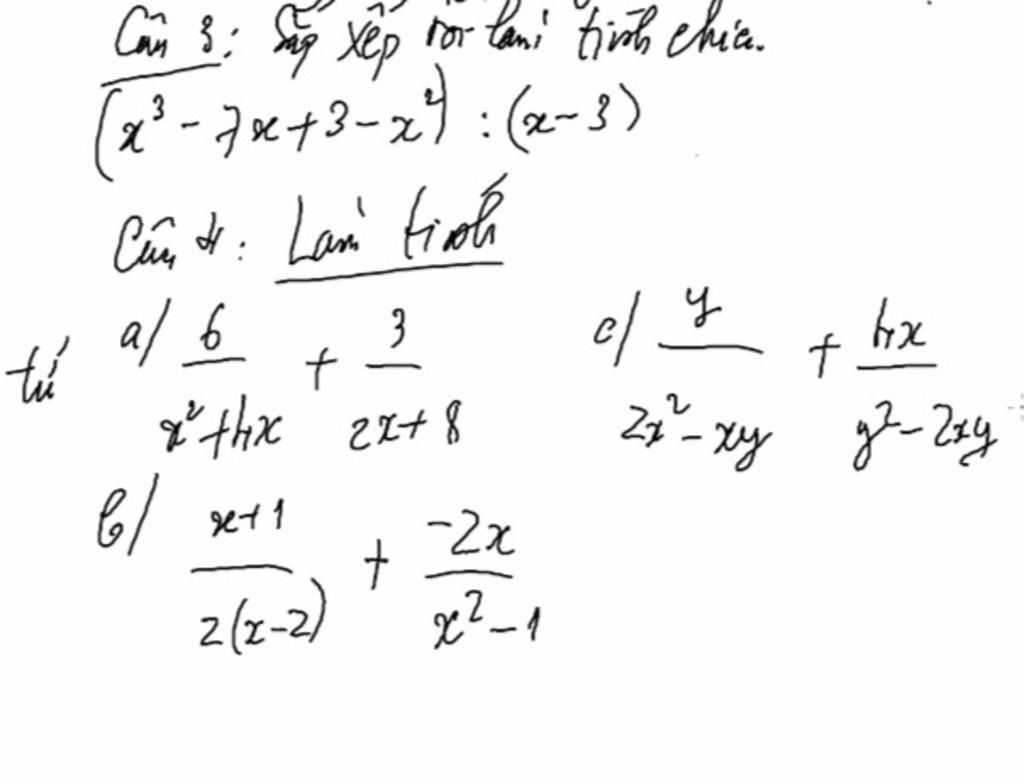 Câu 3: Sắp xếp rồi làm tính chia.
(x³ - 7x + 3 - x²) : (x - 3)
Câu 4: Làm tính
a/ 6/(x² + 4x) + 3/(2x + 8)
c/ y/(2x² - xy) + 4x/(y² - 2xy)
tú
b/ (x + 1)/(2(x - 2)) + (-2x)/(x² - 1)